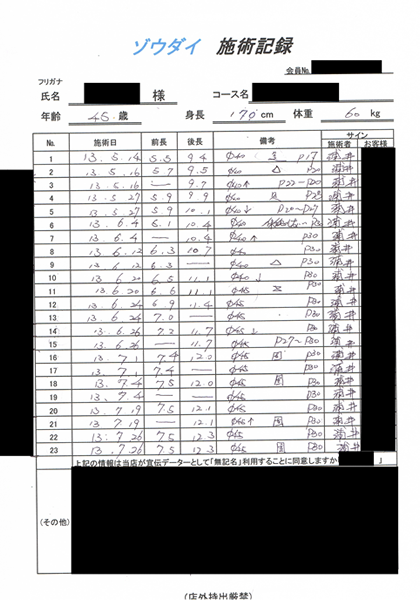 ゾウダイ 施術記録
会員No.
フリガナ
氏名 様 コース名
年齢 45 歳 身長 170 cm 体重 60 kg
No. 施術日 前長 後長 備考 サイン
施術者 お客様
1 13.5.14 5.5 9.4 φ40 P17 涌井
2 13.5.16 5.7 9.5 φ40 △ P20 涌井
3 13.5.16 — 9.7 φ40↑ P22〜P20 涌井
4 13.5.27 5.9 9.9 φ40 P25 涌井
5 13.5.27 5.9 10.1 φ40↓ P20〜P27 涌井
6 13.6.4 6.1 10.4 φ40 P30 涌井
7 13.6.4 — 10.4 φ40↑ P30 涌井
8 13.6.12 6.3 10.7 φ40 P30 涌井
9 13.6.12 6.3 — φ40 △ P30 涌井
10 13.6.20 6.5 11.1 φ40↓ P30 涌井
11 13.6.20 6.6 11.1 φ45 P30 涌井
12 13.6.24 6.9 11.4 φ45 P30 涌井
13 13.6.24 7.0 — φ45 P30 涌井
14 13.6.26 7.2 11.7 φ45↓ P30 涌井
15 13.6.26 — 11.7 φ45 P27〜P30 涌井
16 13.7.1 7.4 12.0 φ45 困 P30 涌井
17 13.7.1 7.4 — φ45 P30 涌井
18 13.7.4 7.5 12.0 φ45 困 P30 涌井
19 13.7.4 — — φ45 P30 涌井
20 13.7.19 7.5 12.1 φ45 P30 涌井
21 13.7.19 — 12.1 φ45↑ 困 P30 涌井
22 13.7.26 7.5 12.3 φ45 P30 涌井
23 13.7.26 7.5 12.3 φ45 困 P30 涌井
上記の情報は当店が宣伝データーとして「無記名」利用することに同意しますか 」
(その他)
(店外持出厳禁)